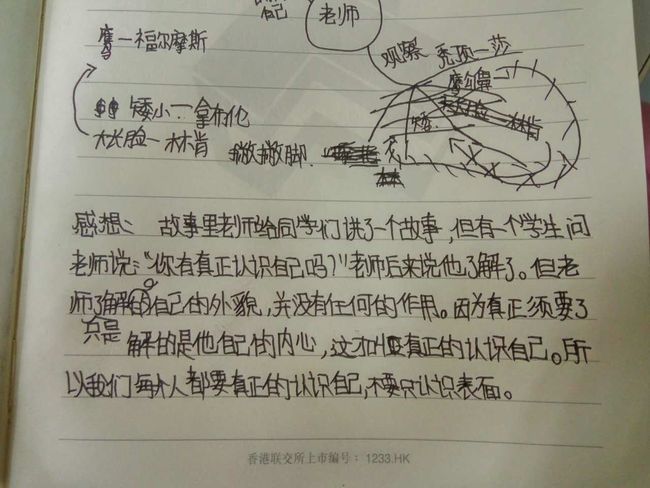 自己
老师
观察 秃顶一莎
鹰一福尔摩斯
摩尔鼻一
矮小一拿布伦
大长脸一林肯
矮 林肯
撇撇脚
感想： 故事里老师给同学们讲了一个故事，但有一个学生问
老师说："你有真正认识自己吗？"老师后来说他了解了。但老
师了解的自己的外貌，并没有任何的作用。因为真正须要了
只是
解的是他自己的内心，这才叫真正的认识自己。所
以我们每个人都要真正的认识自己，不要只认识表面。
香港联交所上市编号：1233.HK